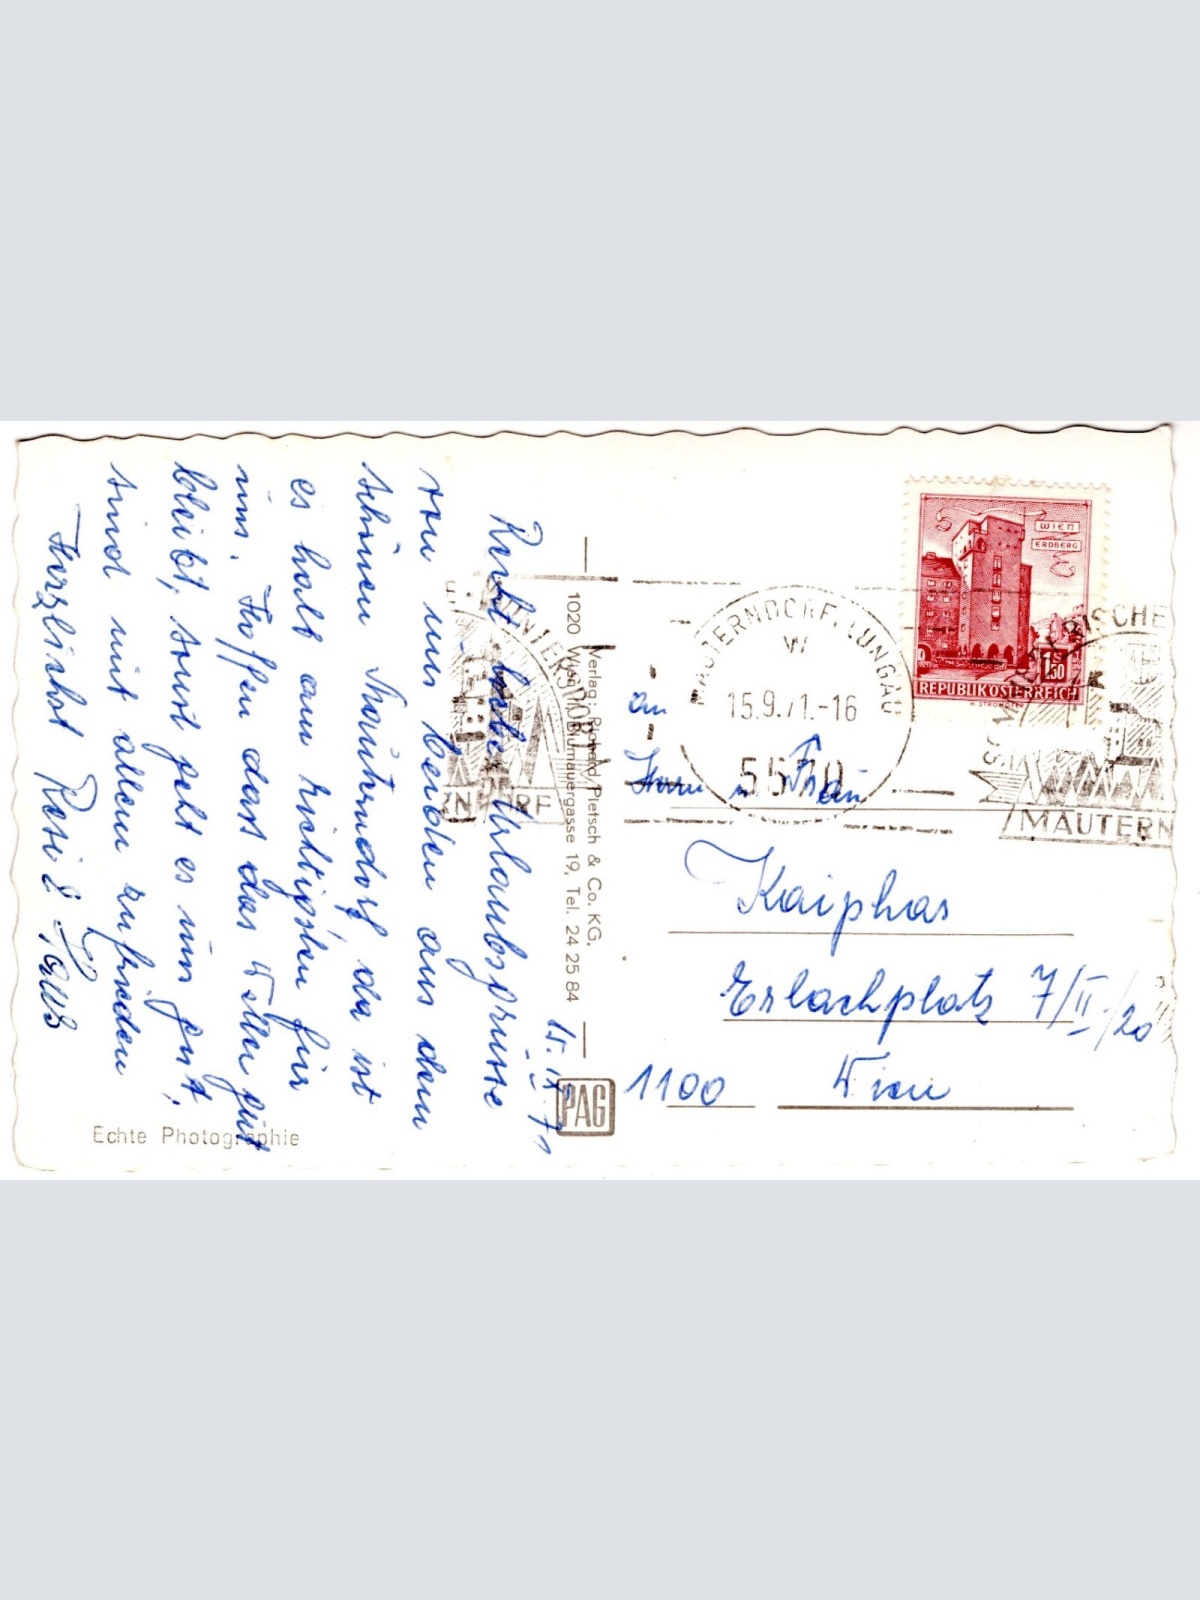 15. IX. 71
Recht liebe Urlaubsgrüsse
von uns beiden aus dem
schönen Mauterndorf da ist
es halt am richtigsten für
uns. Hoffen dass das Wetter gut
bleibt, sonst geht es uns gut,
sind mit allem zufrieden
Herzlichst Resi &
Echte Photographie
Verlag: Richard Pietsch & Co. KG.
1020 Wien, Blumauergasse 19, Tel. 24 25 84
PAG
WIEN
ERDBERG
1.50
REPUBLIK ÖSTERREICH
MAUTERNDORF, LUNGAU
W
15.9.71.-16
5570
MAUTERN
An
Herrn u Frau
Kaiphas
Erlachplatz 7/II/20
1100 Wien